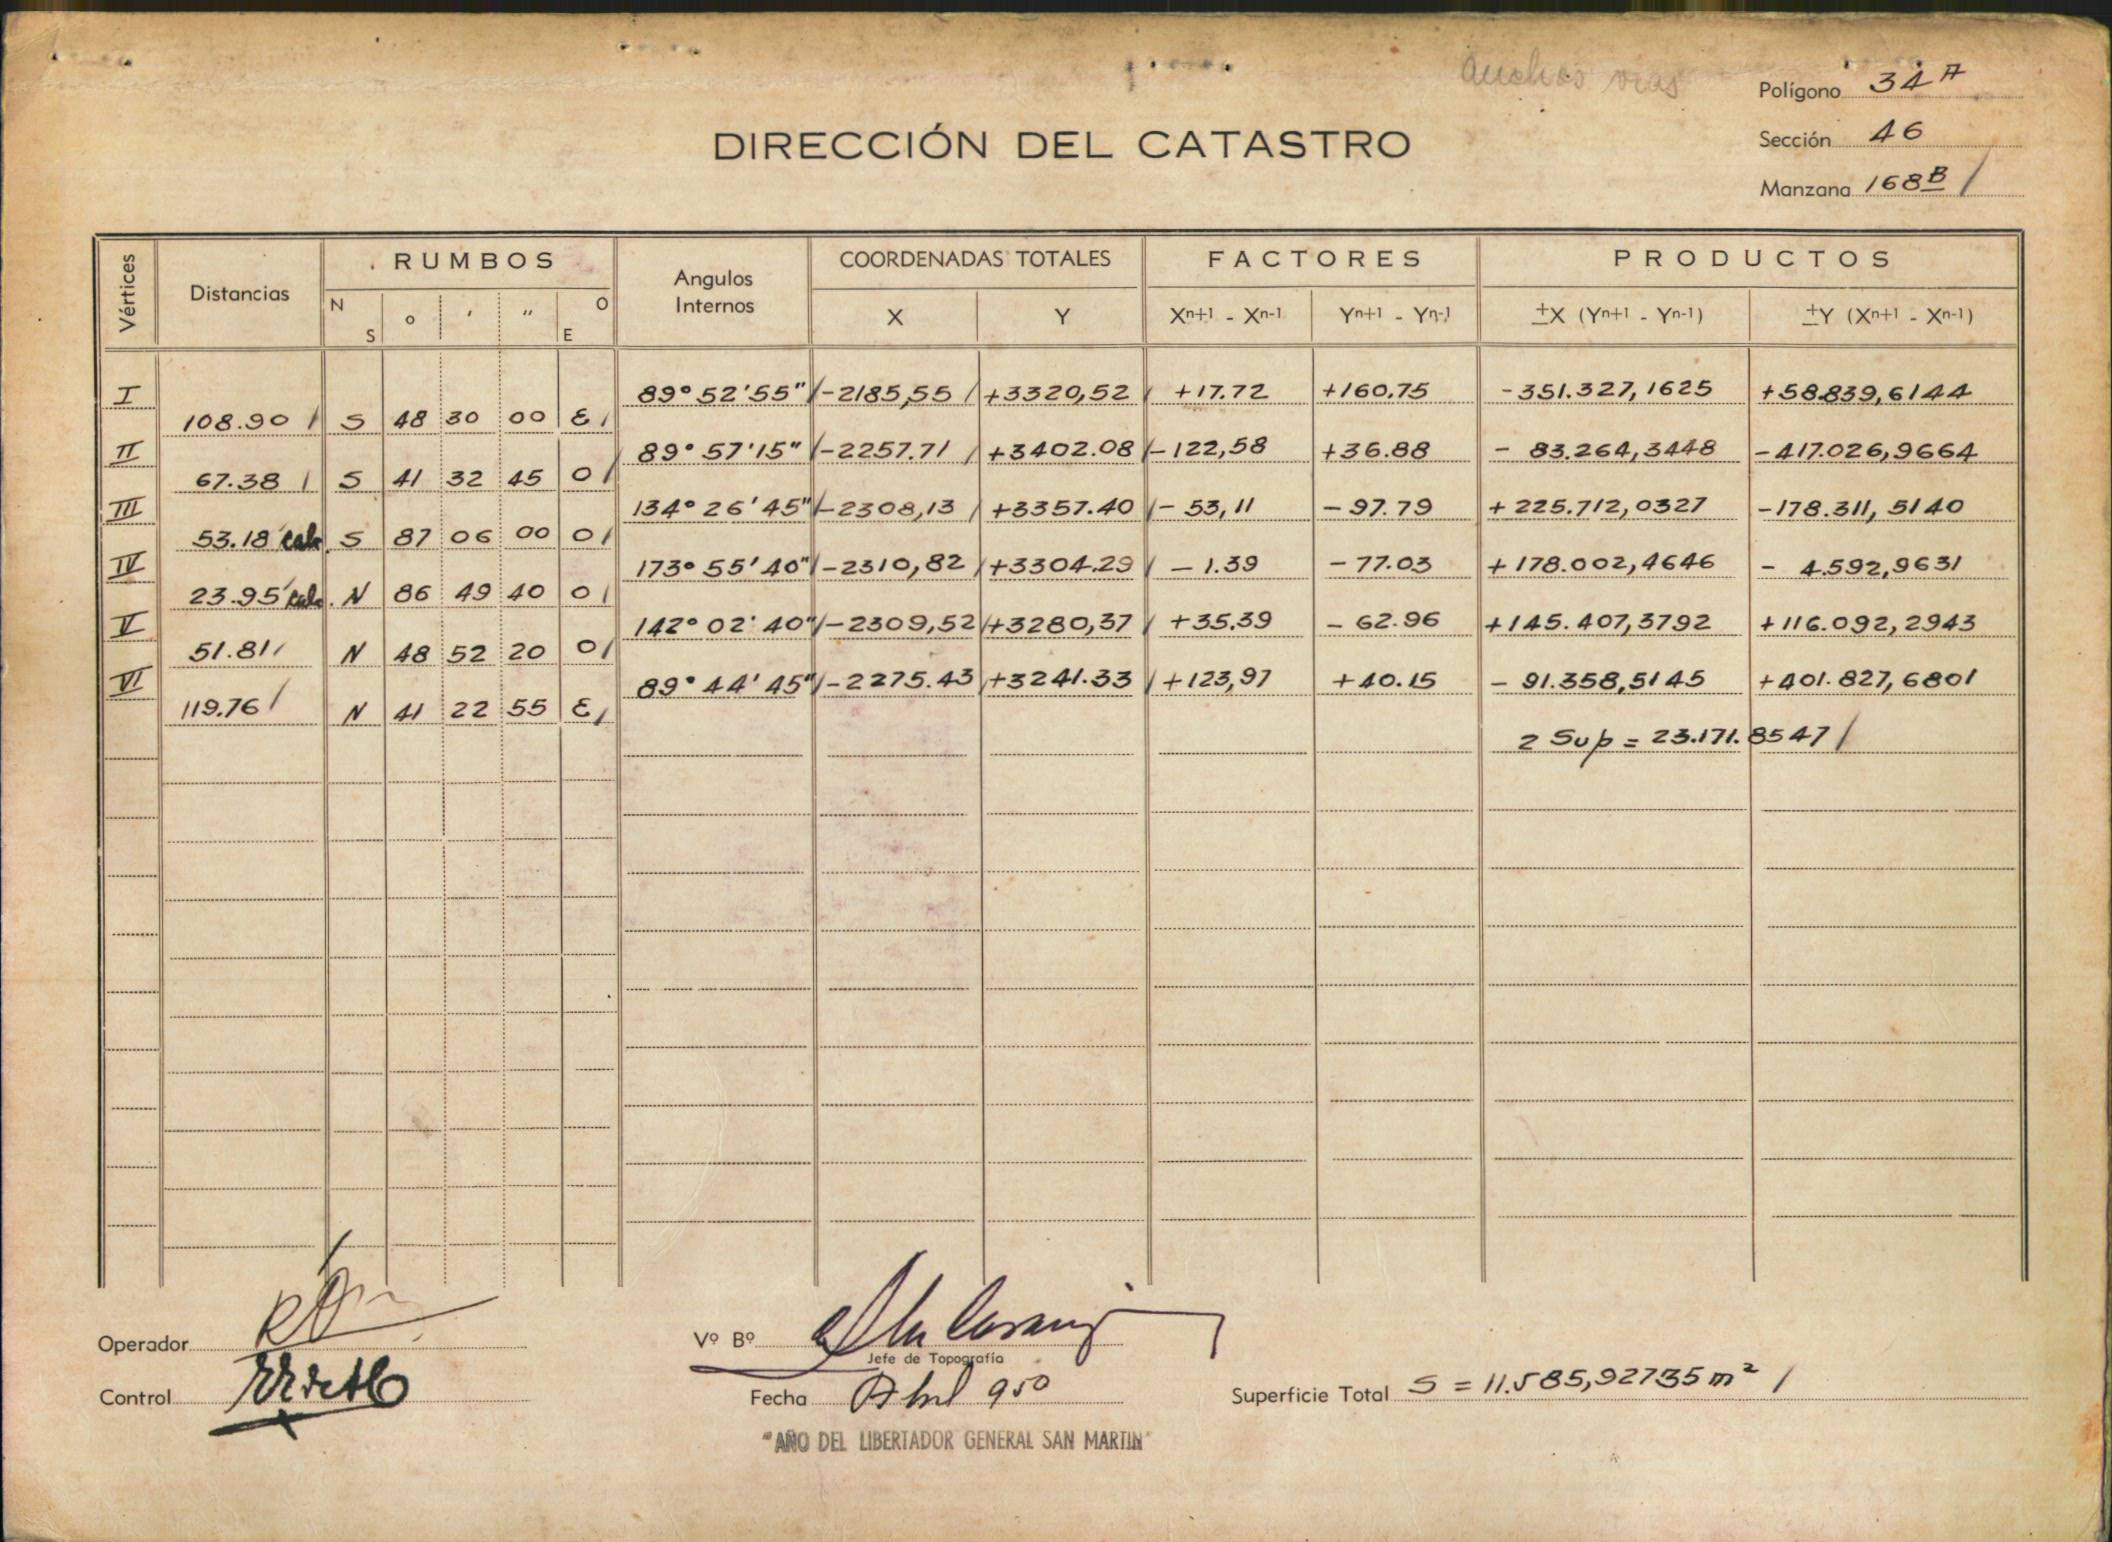 Polígono 34 A
DIRECCIÓN DEL CATASTRO
Sección 46
Manzana 168B /
Vértices Distancias RUMBOS Angulos Internos COORDENADAS TOTALES FACTORES PRODUCTOS
N S o ' " O E X Y Xn+1 - Xn-1 Yn+1 - Yn-1 ±X (Yn+1 - Yn-1) ±Y (Xn+1 - Xn-1)
I 89° 52' 55" / -2185,55 / +3320,52 / +17.72 +160.75 -351.327,1625 +58.839,6144
108.90 / S 48 30 00 E /
II 89° 57' 15" / -2257.71 / +3402.08 / -122,58 +36.88 - 83.264,3448 -417.026,9664
67.38 / S 41 32 45 O /
III 134° 26' 45" / -2308,13 / +3357.40 / - 53,11 - 97.79 + 225.712,0327 -178.311,5140
53.18 calc. S 87 06 00 O /
IV 173° 55' 40" / -2310,82 / +3304.29 / - 1.39 - 77.03 + 178.002,4646 - 4.592,9631
23.95 calc. N 86 49 40 O /
V 142° 02' 40" / -2309,52 / +3280,37 / +35.39 - 62.96 +145.407,3792 +116.092,2943
51.81 / N 48 52 20 O /
VI 89° 44' 45" / -2275.43 / +3241.33 / +123,97 +40.15 - 91.358,5145 +401.827,6801
119.76 / N 41 22 55 E /
2 Sup = 23.171.8547 /
Operador
Vº Bº
Jefe de Topografía
Control
Fecha Abril 950
Superficie Total S = 11.585,92735 m² /
"AÑO DEL LIBERTADOR GENERAL SAN MARTIN"